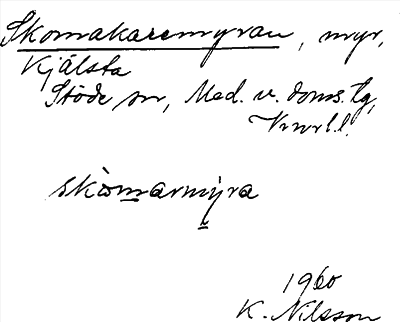 Skomakaremyran, myr,
Kjälsta
Stöde sn, Med. v. doms. tg,
Vnrl.l.
skòmarmýra
1960
K. Nilsson